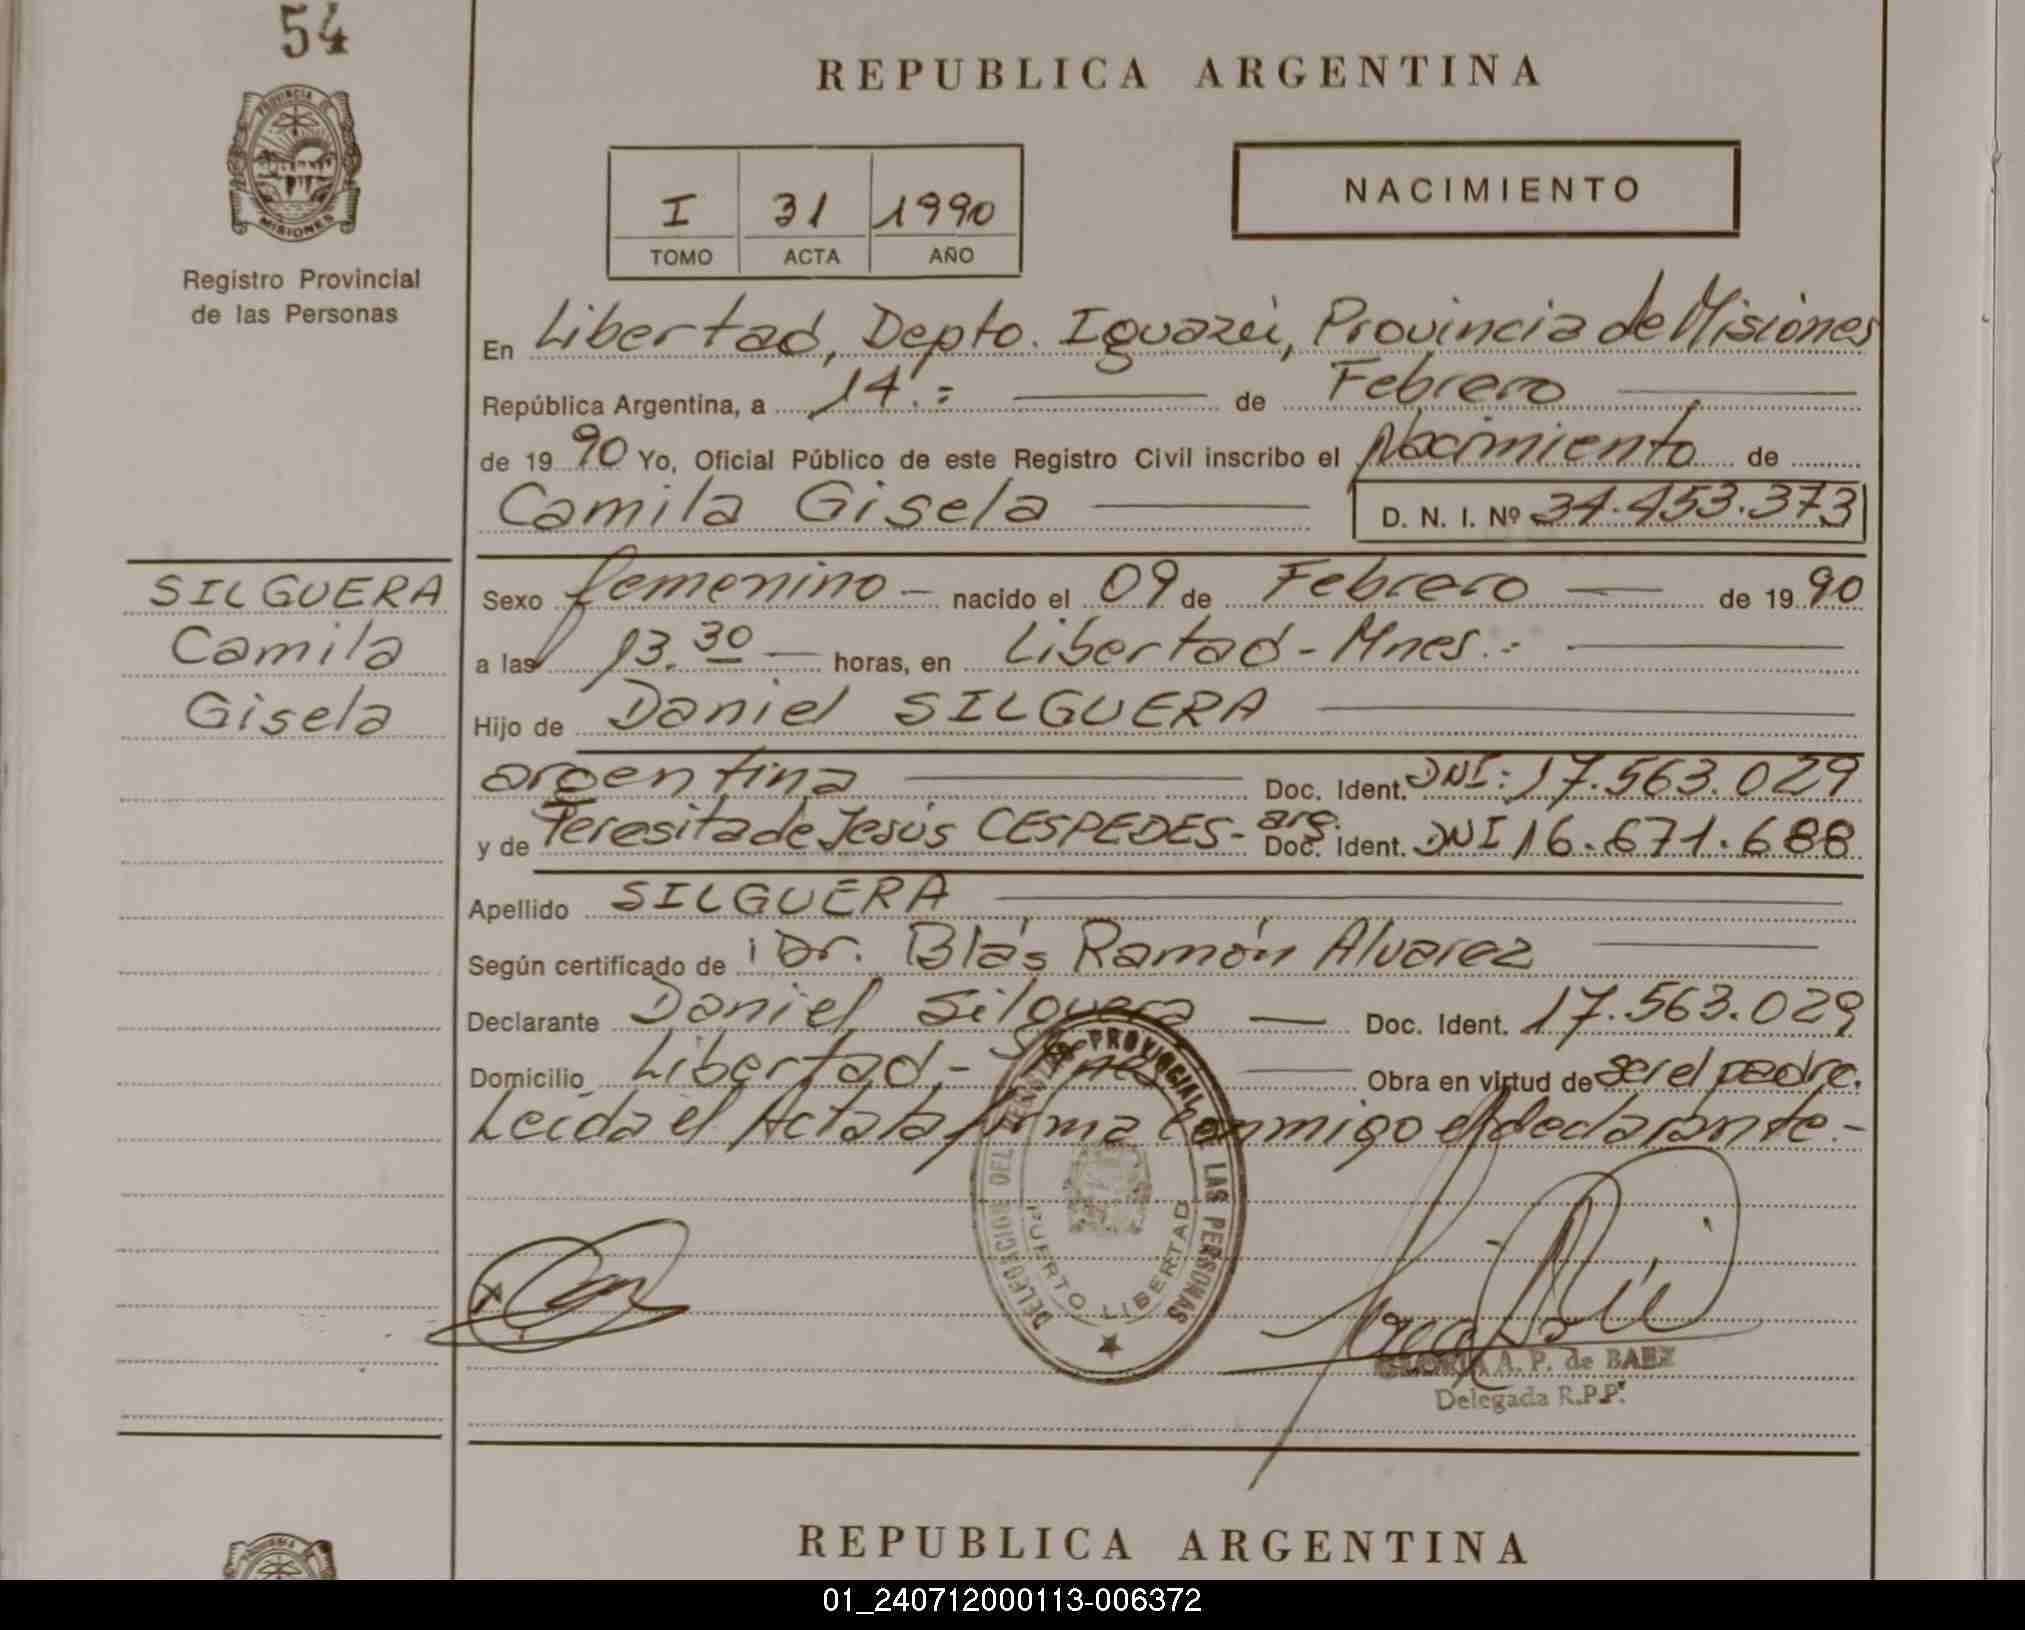 54
REPUBLICA ARGENTINA
PROVINCIA DE
MISIONES
Registro Provincial
de las Personas
I 31 1990
TOMO ACTA AÑO
NACIMIENTO
En Libertad, Depto. Iguazú, Provincia de Misiones
República Argentina, a 14.= de Febrero
de 1990 Yo, Oficial Público de este Registro Civil inscribo el Nacimiento de
Camila Gisela D. N. I. Nº 34.453.373
SILGUERA
Camila
Gisela
Sexo femenino - nacido el 09 de Febrero de 1990
a las 13.30 horas, en Libertad - Mnes.-
Hijo de Daniel SILGUERA
argentina Doc. Ident. DNI: 17.563.029
y de Teresita de Jesús CESPEDES - arg. Doc. Ident. DNI 16.671.688
Apellido SILGUERA
Según certificado de Dr. Blás Ramón Alvarez
Declarante Daniel Silguera Doc. Ident. 17.563.029
Domicilio Libertad,- Mnes Obra en virtud de ser el padre.
Leída el Acta la firma conmigo el declarante.-
DELEGACION DEL REGISTRO PROVINCIAL DE LAS PERSONAS
PUERTO LIBERTAD
GLORIA A. P. de BAEZ
Delegada R.P.P.
REPUBLICA ARGENTINA
01_240712000113-006372